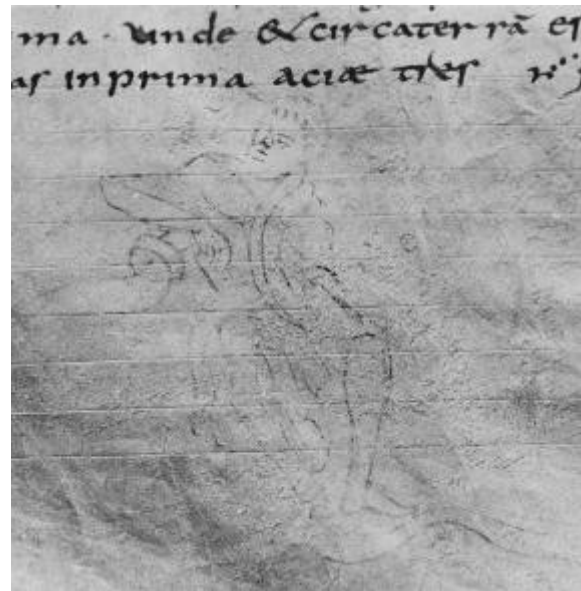 ma · unde & circa terrā es
as in prima aciæ tres